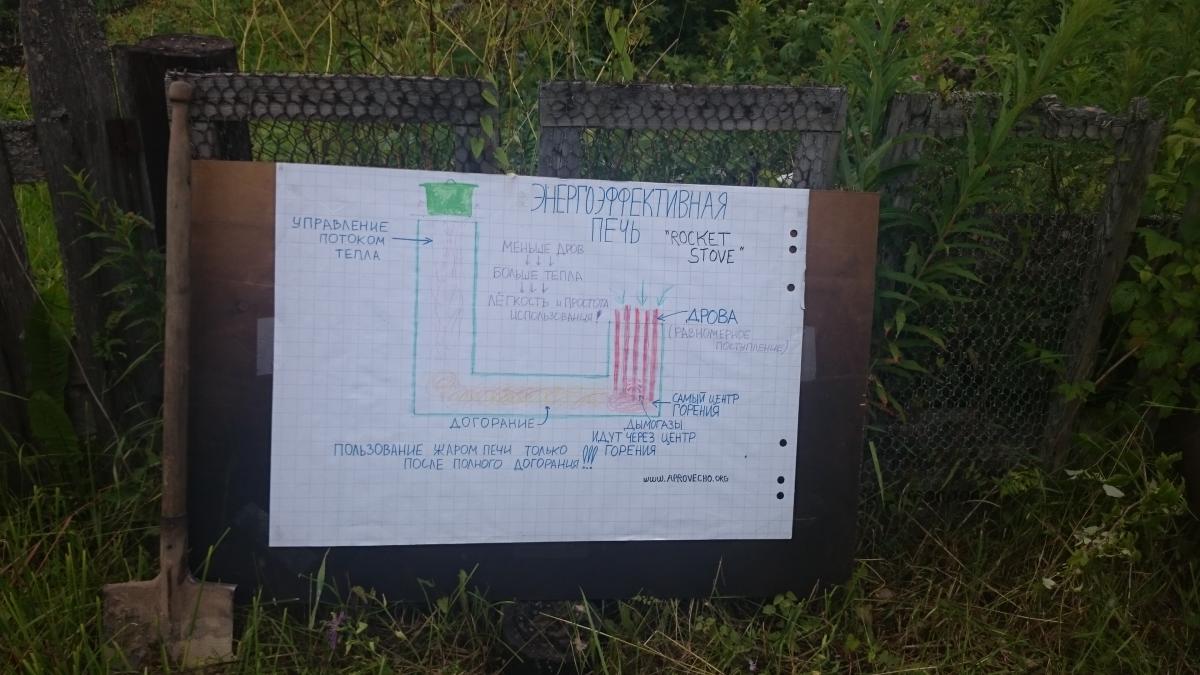 ЭНЕРГОЭФФЕКТИВНАЯ
ПЕЧЬ "ROCKET
STOVE"
УПРАВЛЕНИЕ
ПОТОКОМ
ТЕПЛА
МЕНЬШЕ ДРОВ
↓ ↓ ↓
БОЛЬШЕ ТЕПЛА
↓ ↓ ↓
ЛЁГКОСТЬ и ПРОСТОТА
ИСПОЛЬЗОВАНИЯ!
ДРОВА
(РАВНОМЕРНОЕ
ПОСТУПЛЕНИЕ)
САМЫЙ ЦЕНТР
ГОРЕНИЯ
ДОГОРАНИЕ
ДЫМОГАЗЫ
ИДУТ ЧЕРЕЗ ЦЕНТР
ГОРЕНИЯ
ПОЛЬЗОВАНИЕ ЖАРОМ ПЕЧИ ТОЛЬКО
ПОСЛЕ ПОЛНОГО ДОГОРАНИЯ!!!
www.APROVECHO.ORG